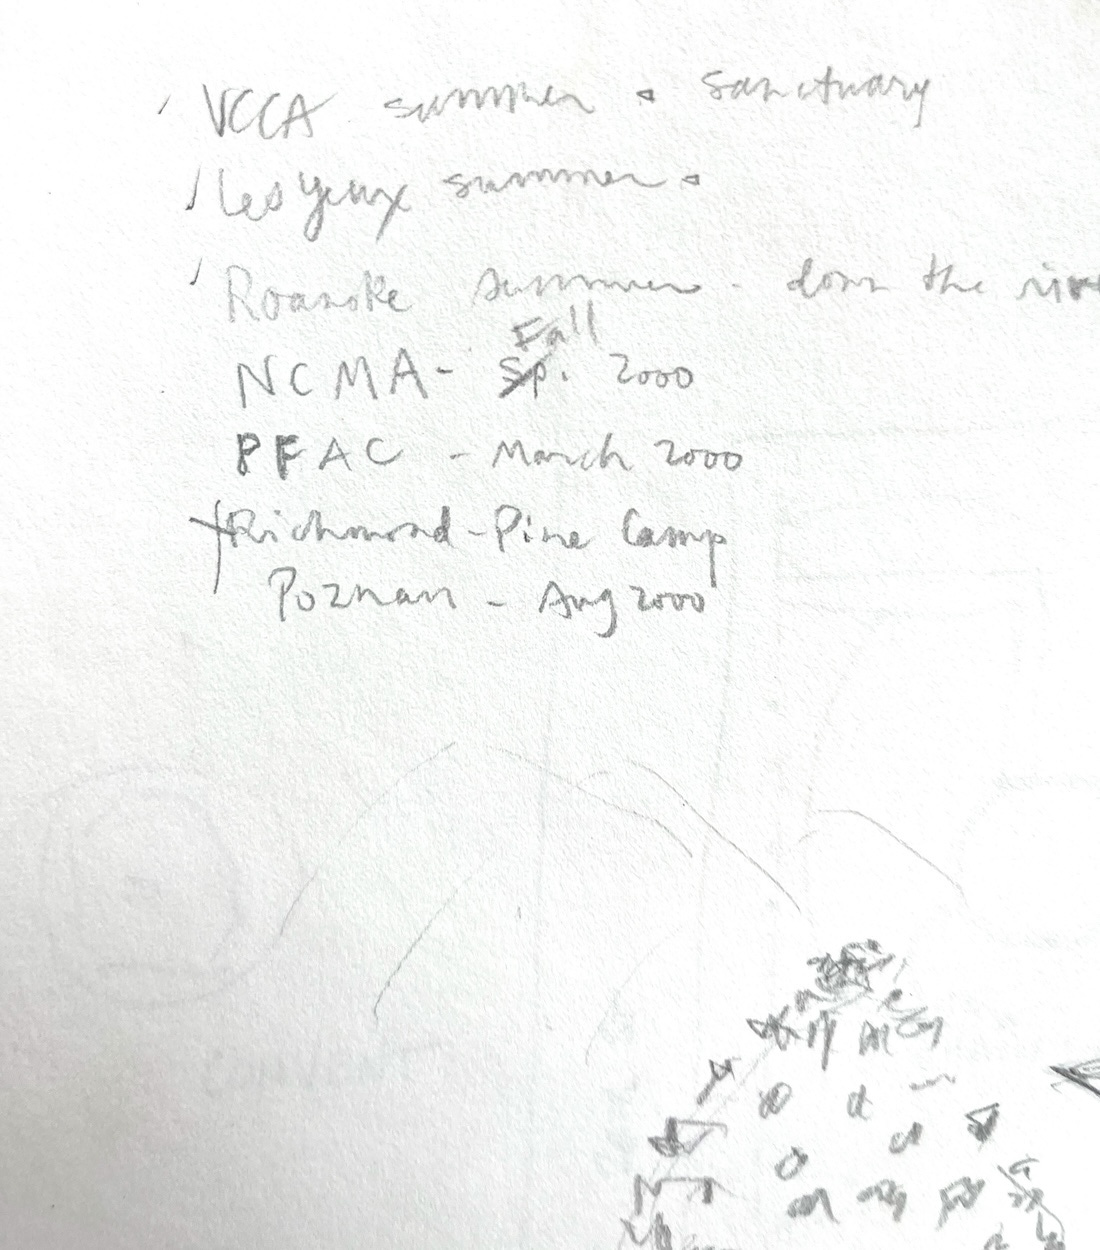 VCCA summer - sanctuary
les yeux summer -
Roanoke summer - down the
Fall
NCMA - Sp. 2000
PFAC - March 2000
Richmond - Pine Camp
Poznan - Aug 2000